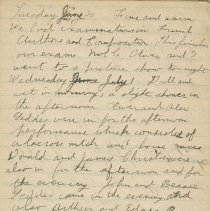 Tuesday June 30 Fine and warm
We had examinations in French
Authors and Composition. This finishes
our exams. Two B, Olive and I
went to a picture show to night
Wednesday June July 1. Dull and
wet in morning, a slight shower in
the afternoon. Ciceri and Alex
Geddes were in for the afternoon
performance which consisted of
a lacrosse match and horse races
Donald and James Christie were
also in for the afternoon and for
the evening. John and Bessie
Geddes came in the evening and
also Arthur and